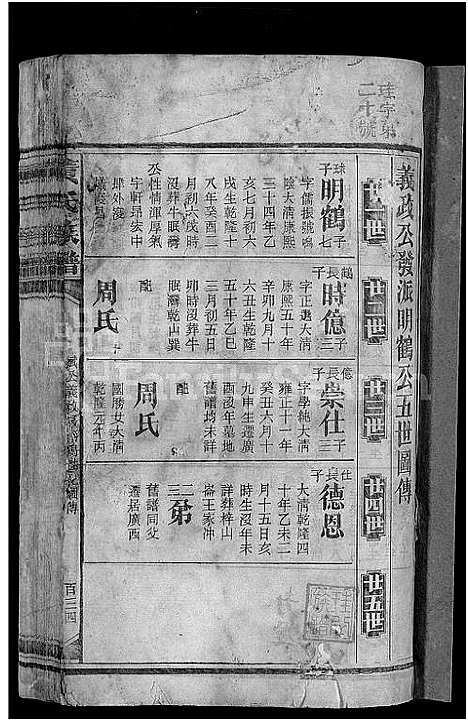 珠字第
二十號
義政公發派明鶴公五世圖傳
廿一世
廿二世
廿三世
廿四世
廿五世
球七子
明鶴
子七
字儒振號鳴
陰大清康熙
三十四年乙
亥七月初六
戌生乾隆十
八年癸酉二
月初六戌時
沒葬牛眠灣
公性情渾厚氣
宇軒昂家中
肆外淺
鶴長子
時億
子三
字正選大清
康熙五十年
辛卯九月十
六丑生乾隆
五十年乙巳
三月初五日
卯時沒葬牛
眠灣乾山巽
配
周氏
億長子
崇仕
子三
字學純大清
雍正十一年
癸丑六月十
九申生遷廣
酉沒年墓地
舊譜均未詳
配
周氏
國勝女大清
乾隆元年丙
仕長子
德恩
大清乾隆四
十年乙未二
月十五日亥
時生沒年未
詳葬梓山
崙王家冲
二三
弟
舊譜同父
遷居廣西
氏族譜
百三四